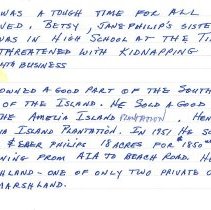 WAS A TOUGH TIME FOR ALL
NED, BETSY, JANE PHILIP'S SISTE
WAS IN HIGH SCHOOL AT THE TI
THREATENED WITH KIDNAPPING
BUSINESS
OWNED A GOOD PART OF THE SOUTH
OF THE ISLAND. HE SOLD A GOOD
THE AMELIA ISLAND PLANTATION, HEN
IA ISLAND PLANTATION. IN 1951 HE SO
& EBER PHILIPS 18 ACRES FOR 1850
NING FROM A1A TO BEACH ROAD. H
HLAND - ONE OF ONLY TWO PRIVATE O
MARSHLAND.